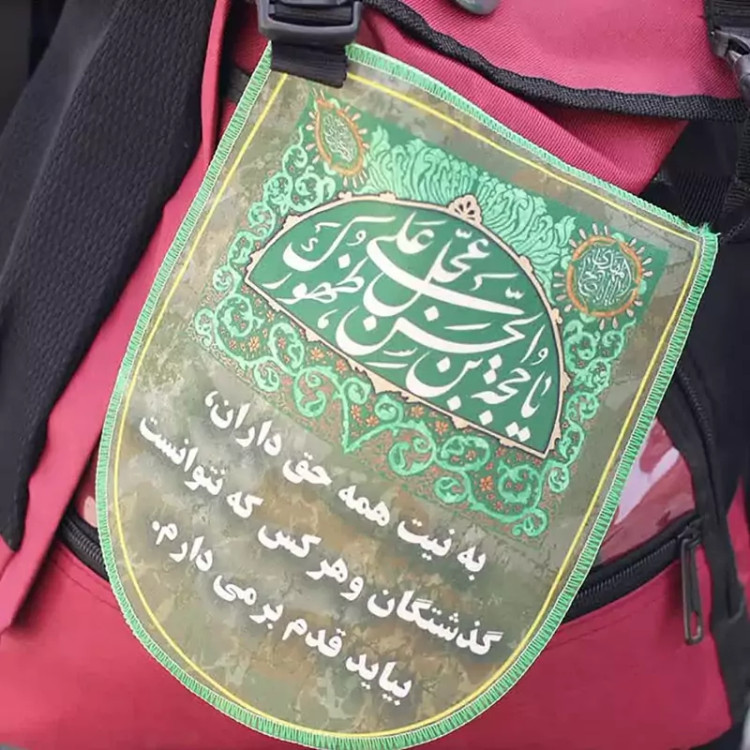 یا حجة بن الحسن عجل علی ظهورک
به نیت همه حق داران،
گذشتگان وهرکس که نتوانست
بیاید قدم برمی دارم.